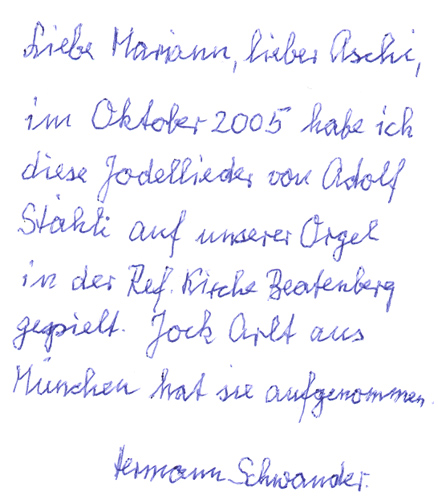 Liebe Mariann, lieber Aschi,
im Oktober 2005 habe ich
diese Jodellieder von Adolf
Stähli auf unserer Orgel
in der Ref. Kirche Beatenberg
gespielt. Jock Arlt aus
München hat sie aufgenommen.
Hermann Schwander.